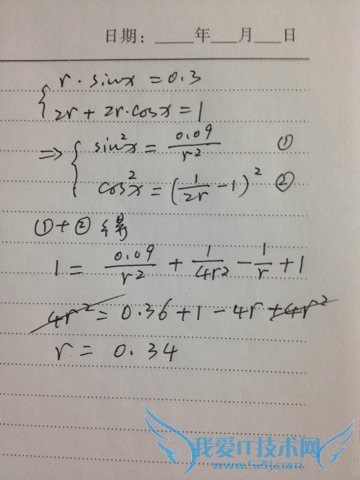 日期：____年___月___日
{ r·sinx = 0.3
2r + 2r·cosx = 1
⇒ { sin²x = 0.09/r² ①
cos²x = (1/2r - 1)² ②
① + ② 得
1 = 0.09/r² + 1/4r² - 1/r + 1
4r² = 0.36 + 1 - 4r + 4r²
r = 0.34
我爱IT技术网
www.52ij.com